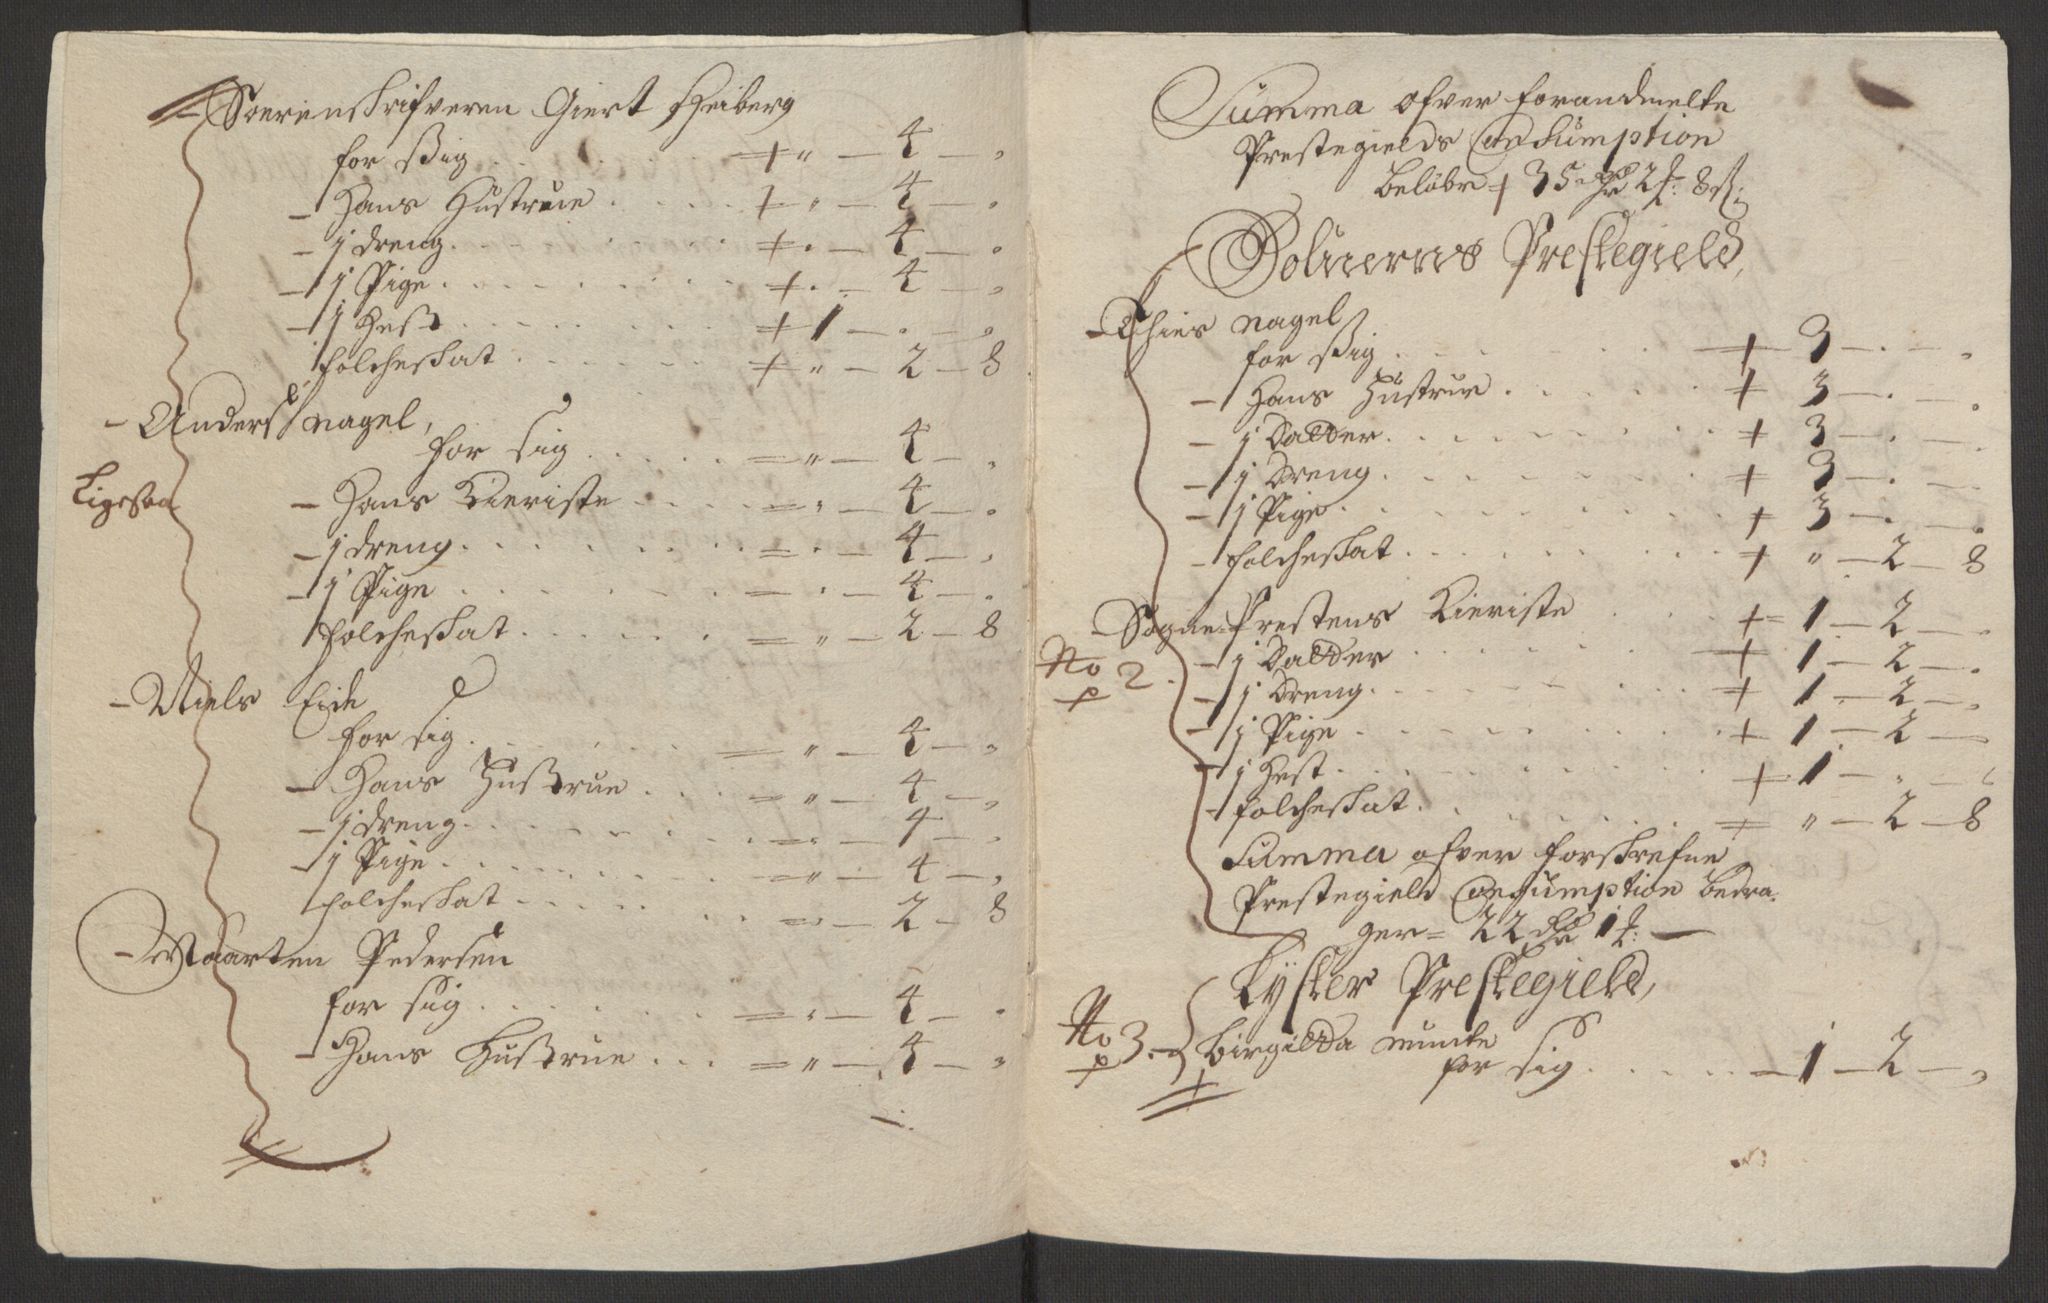 Soerenskrifveren Giert Heiberg
for sig . . . . + " — 4 — "
— Hans Hustrue . . . . + " — 4 — "
— 1 dreng . . . . + " — 4 — "
— 1 Pige . . . . + " — 4 — "
— 1 Hest . . . . + 1 — " — "
folcheskat . . . . + " — 2 — 8
— Anders nagel,
for sig . . . . = " — 4 — "
Ligesaa
— Hans Kieriste . . . . = " — 4 — "
— 1 dreng . . . . = " — 4 — "
— 1 Pige . . . . = " — 4 — "
folcheskat . . . . = " — 2 — 8
— Niels Eide
for sig . . . . = " — 4 — "
— Hans Hustrue . . . . = " — 4 — "
— 1 dreng . . . . = " — 4 — "
— 1 Pige . . . . = " — 4 — "
folcheskat . . . . = " — 2 — 8
— Maarten Pedersen
for sig . . . . = " — 4 — "
— Hans Hustrue . . . = " — 4 — "
Summa ofver forandmelte
Prestegields Consumption
beløbr + 35 Rdr 2 f: 8 s:
Solnerns Prestegield,
— Thies nagel
for sig . . . . + 3 — " — "
— Hans Hustrue . . . . + 3 — " — "
— 1 Datter . . . . + 3 — " — "
— 1 Dreng . . . . + 3 — " — "
— 1 Pige . . . . + 3 — " — "
— folcheskat . . . . + " — 2 — 8
— Sogne-Prestens Kieriste . . + = 1 — 2 — "
No 2.
— 1 Datter . . . . + 1 — 2 — "
— 1 Dreng . . . . + 1 — 2 — "
— 1 Pige . . . . + 1 — 2 — "
— 1 Hest . . . . + 1 — " — "
— folcheskat . . . . = " — 2 — 8
Summa ofver forskrefne
Prestegield Consumption bedra-
ger = 22 Rdr 1 f: —
Lyster Prestegield,
No 3. — Birgitta munte
for sig . . . . — 1 — 2 — "